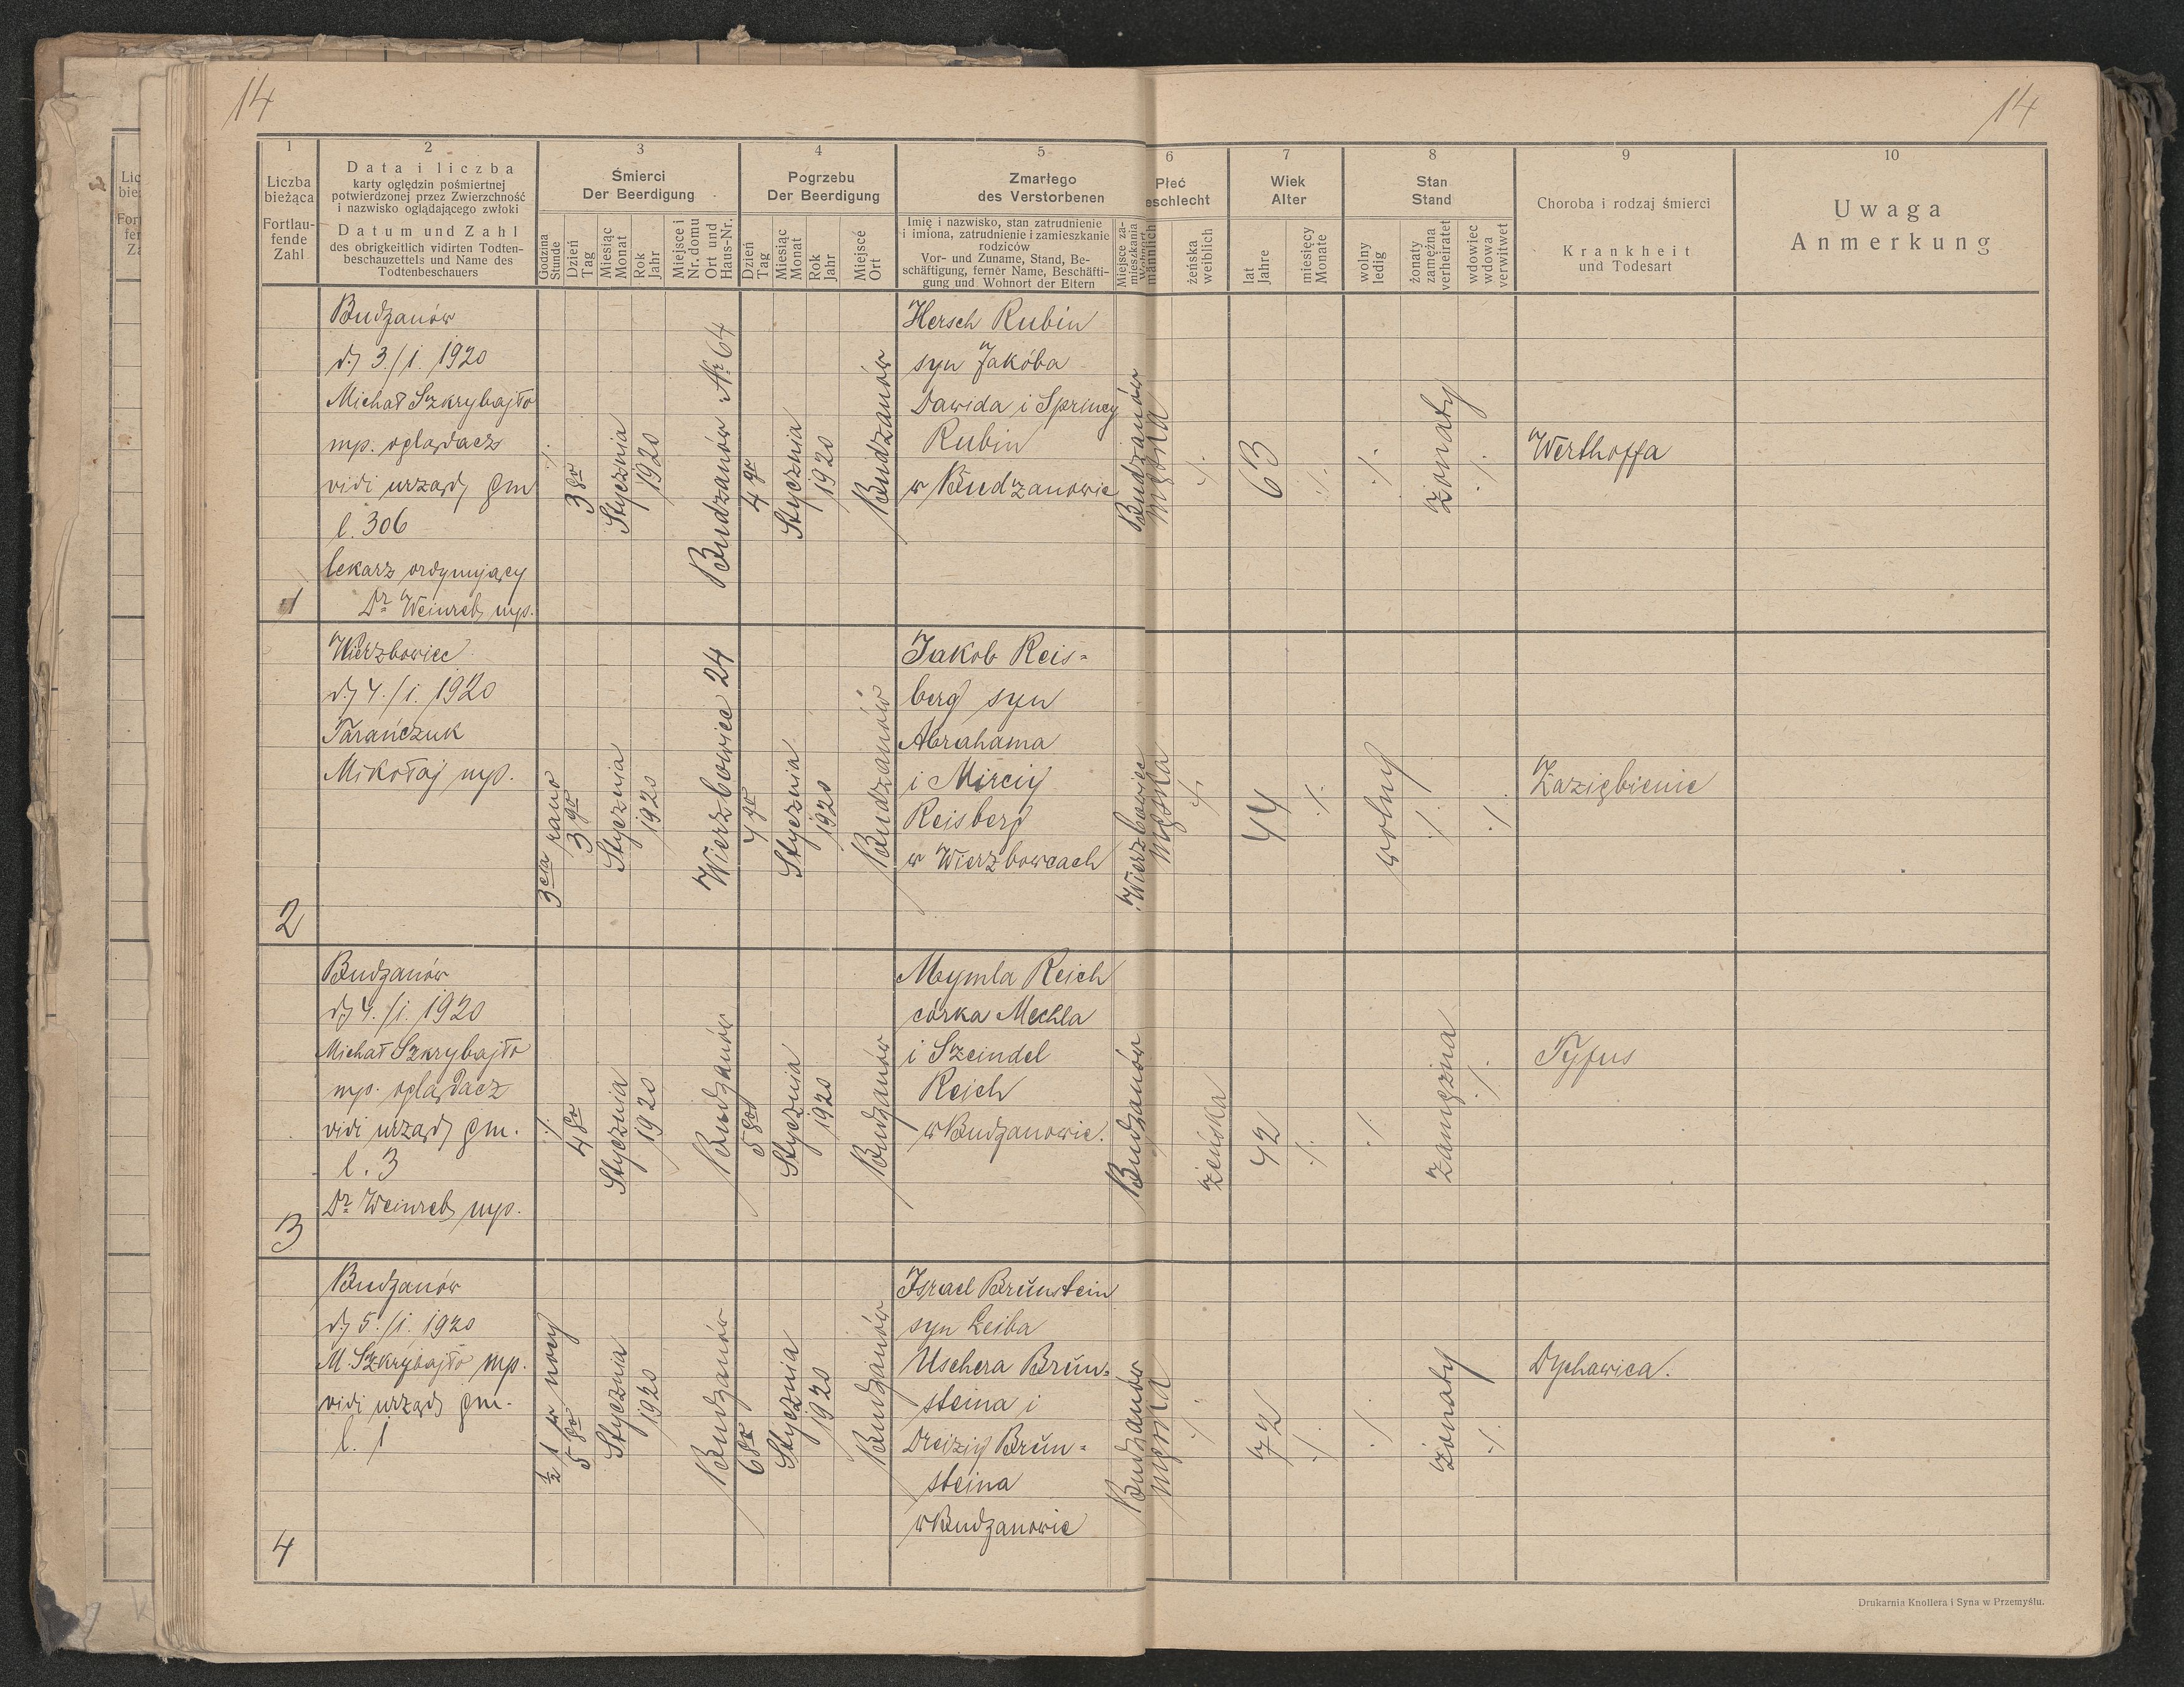 14
14
1
2
3
4
5
6
7
8
9
10
Liczba
bieżąca
Fortlau-
fende
Zahl
Data i liczba
karty oględzin pośmiertnej
potwierdzonej przez Zwierzchność
i nazwisko oglądającego zwłoki
Datum und Zahl
des obrigkeitlich vidirten Todten-
beschauzettels und Name des
Todtenbeschauers
Śmierci
Der Beerdigung
Godzina
Stunde
Dzień
Tag
Miesiąc
Monat
Rok
Jahr
Miejsce i
Nr. domu
Ort und
Haus-Nr.
Pogrzebu
Der Beerdigung
Dzień
Tag
Miesiąc
Monat
Rok
Jahr
Miejsce
Ort
Zmarłego
des Verstorbenen
Imię i nazwisko, stan zatrudnienie
i imiona, zatrudnienie i zamieszkanie
rodziców
Vor- und Zuname, Stand, Be-
schäftigung, ferner Name, Beschäfti-
gung und Wohnort der Eltern
Miejsce za-
mieszkania
Wohnort
Płeć
eschlecht
männlich
żeńska
weiblich
Wiek
Alter
lat
Jahre
miesięcy
Monate
Stan
Stand
wolny
ledig
żonaty
zamężna
verheiratet
wdowiec
wdowa
verwitwet
Choroba i rodzaj śmierci
Krankheit
und Todesart
Uwaga
Anmerkung
1
Budzanów
d. 3./I. 1920
Michał Szkrybajło
mp. oglądacz
vidi urząd gm
l. 306
lekarz ordynujący
Dr Weinreb mp.
./.
3go
Stycznia
1920
Budzanów Nr 64
4go
Stycznia
1920
Budzanów
Hersch Rubin
syn Jakóba
Dawida i Sprincy
Rubin
w Budzanowie
Budzanów
męska
./.
63
./.
./.
żonaty
./.
Werlhoffa
2
Wierzbowiec
d. 4./I. 1920
Tarańczuk
Mikołaj mp.
3cia rano
3go
Stycznia
1920
Wierzbowiec 24
4go
Stycznia
1920
Budzanów
Jakob Reis-
berg syn
Abrahama
i Mirciy
Reisberg
w Wierzbowcach
Wierzbowiec
męska
./.
44
./.
wolny
./.
./.
Zaziębienie
3
Budzanów
d. 4./I. 1920
Michał Szkrybajło
mp. oglądacz
vidi urząd gm.
l. 3
Dr Weinreb mp.
./.
4go
Stycznia
1920
Budzanów
5go
Stycznia
1920
Budzanów
Mymla Reich
córka Mechla
i Szeindel
Reich
w Budzanowie.
Budzanów
żeńska
42
./.
./.
zamężna
./.
Tyfus
4
Budzanów
d. 5./I. 1920
M. Szkrybajło mp.
vidi urząd gm.
l. 1
½ 1 w nocy
5go
Stycznia
1920
Budzanów
6go
Stycznia
1920
Budzanów
Israel Brŭnstein
syn Leiba
Uschera Brŭn-
steina i
Dreiziy Brŭn-
steina
w Budzanowie
Budzanów
męska
./.
72
./.
./.
żonaty
./.
Dychawica.
Drukarnia Knollera i Syna w Przemyślu.